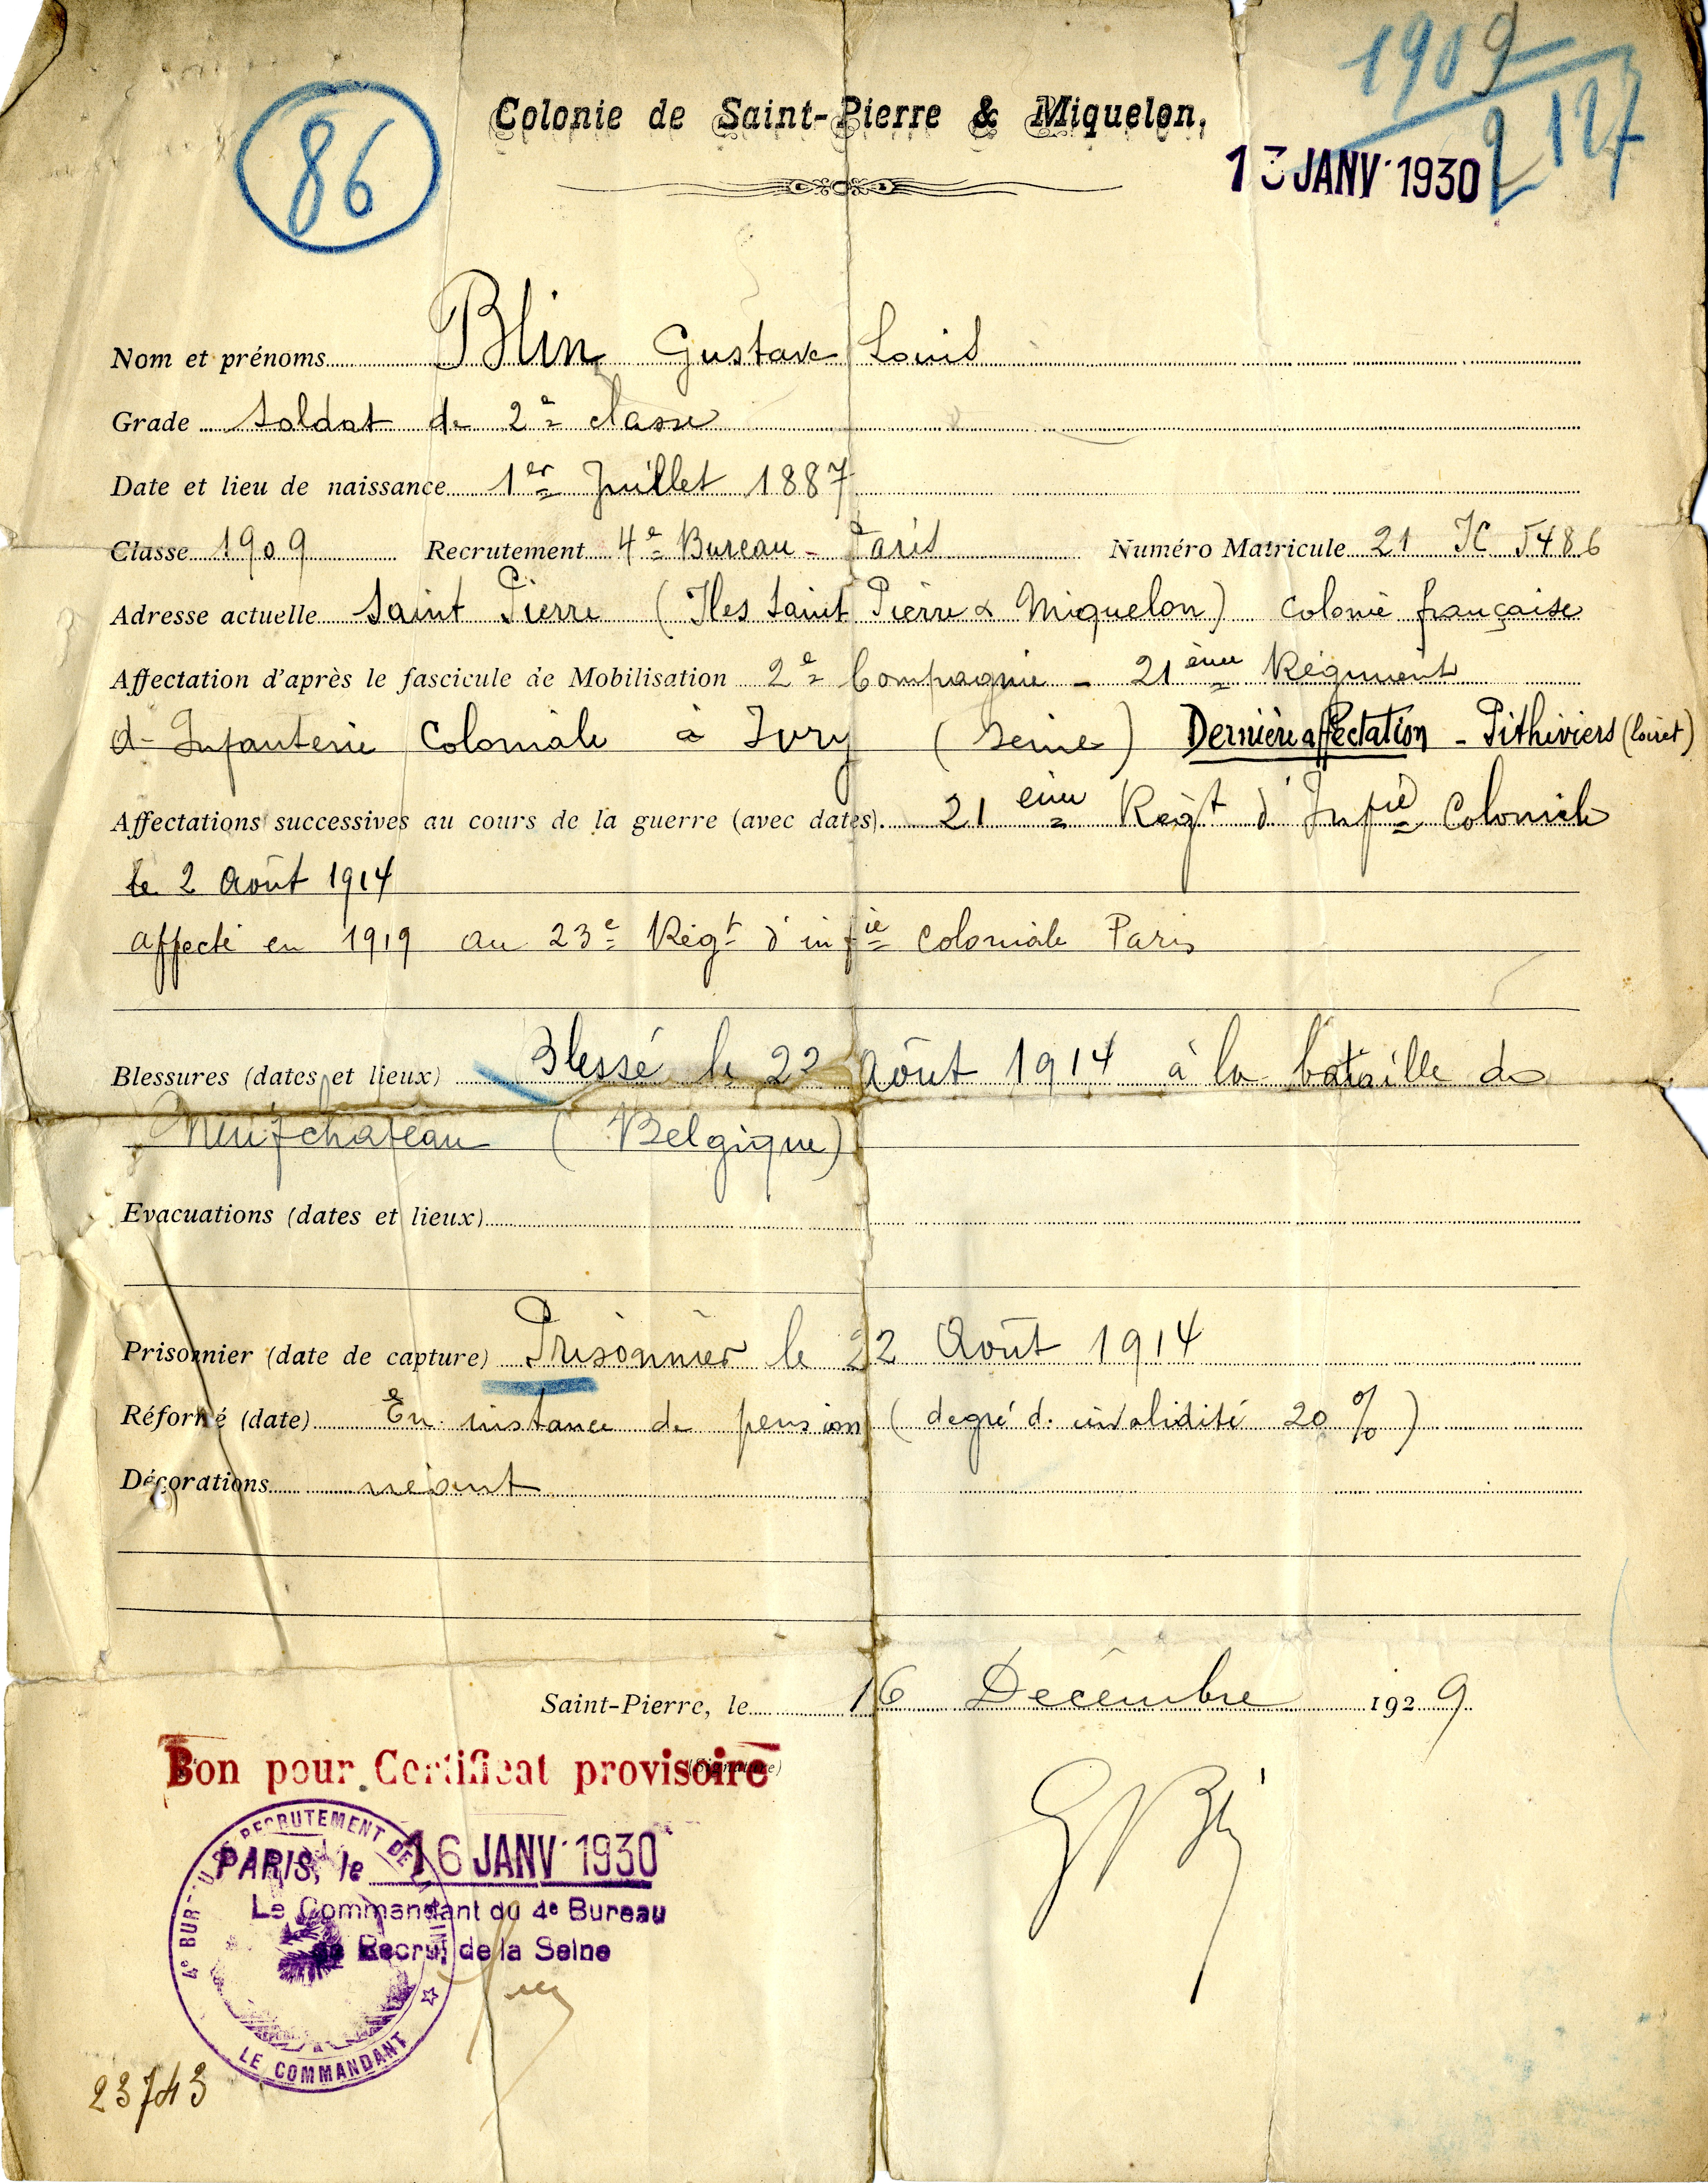 1909
2127
86
Colonie de Saint-Pierre & Miquelon.
13 JANV 1930
Nom et prénoms Blin Gustave Louis
Grade Soldat de 2e classe
Date et lieu de naissance 1er Juillet 1887
Classe 1909 Recrutement 4e Bureau - Paris Numéro Matricule 21 IC 5486
Adresse actuelle Saint Pierre (Iles Saint Pierre & Miquelon) Colonie française
Affectation d'après le fascicule de Mobilisation 2e Compagnie - 21ème Régiment
d'Infanterie Coloniale à Ivry (Seine) Dernière affectation - Pithiviers (Loiret)
Affectations successives au cours de la guerre (avec dates). 21ème Régt d'Infie Coloniale
le 2 Août 1914
affecté en 1919 au 23e Régt d'infie coloniale Paris
Blessures (dates et lieux) Blessé le 22 Août 1914 à la bataille de
Neufchateau (Belgique)
Evacuations (dates et lieux)
Prisonnier (date de capture) Prisonnier le 22 Août 1914
Réformé (date) En instance de pension (degré d. invalidité 20 %)
Décorations néant
Saint-Pierre, le 16 Décembre 1929
(Signature)
Bon pour Certificat provisoire
4e BUREAU DE RECRUTEMENT DE LA SEINE
PARIS, le 16 JANV 1930
Le Commandant du 4e Bureau
de Recrut de la Seine
LE COMMANDANT
23743